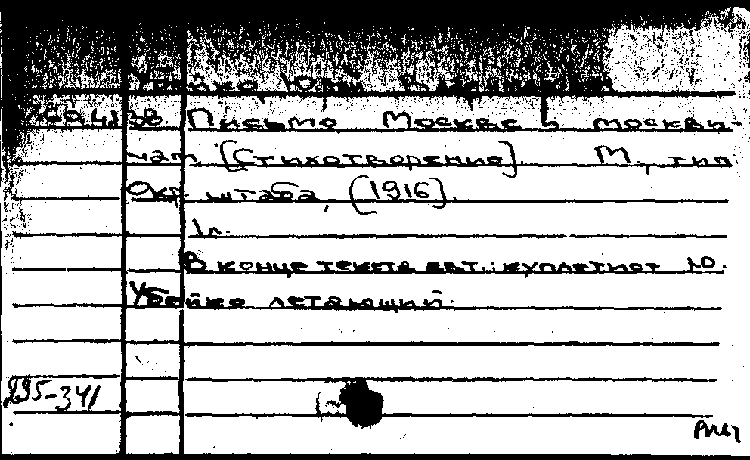 Убейко, Юрий Владимирович
Письмо Москве и москви-
чам. [Стихотворение]. М., тип.
Окр. штаба, [1916].
1л.
В конце текста авт.: куплетист Ю.
Убейко летающий.
295-341